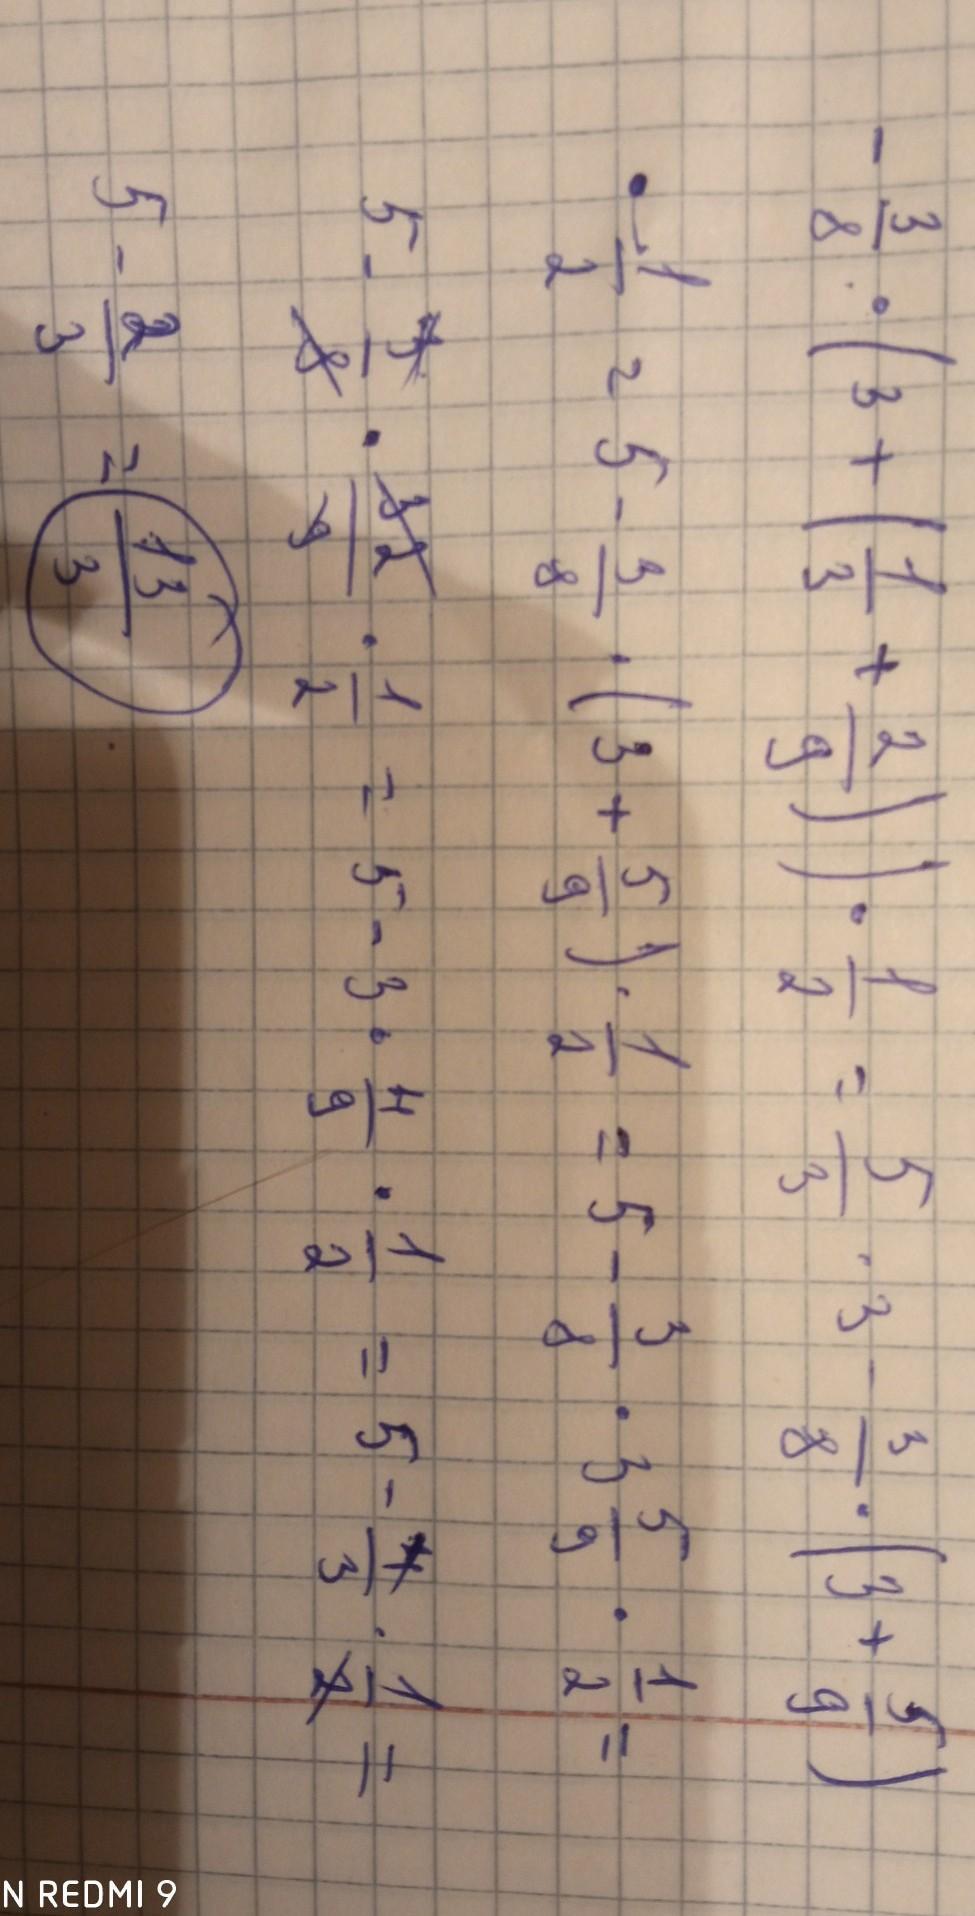 - 3/8 · (3 + (1/3 + 2/9)) · 1/2 = 5/3 · 3 - 3/8 · (3 + 5/9)
· 1/2 = 5 - 3/8 · (3 + 5/9) · 1/2 = 5 - 3/8 · 3 5/9 · 1/2 =
5 - 3/8 · 32/9 · 1/2 = 5 - 3 · 4/9 · 1/2 = 5 - 4/3 · 1/2 =
5 - 2/3 = 13/3
N REDMI 9